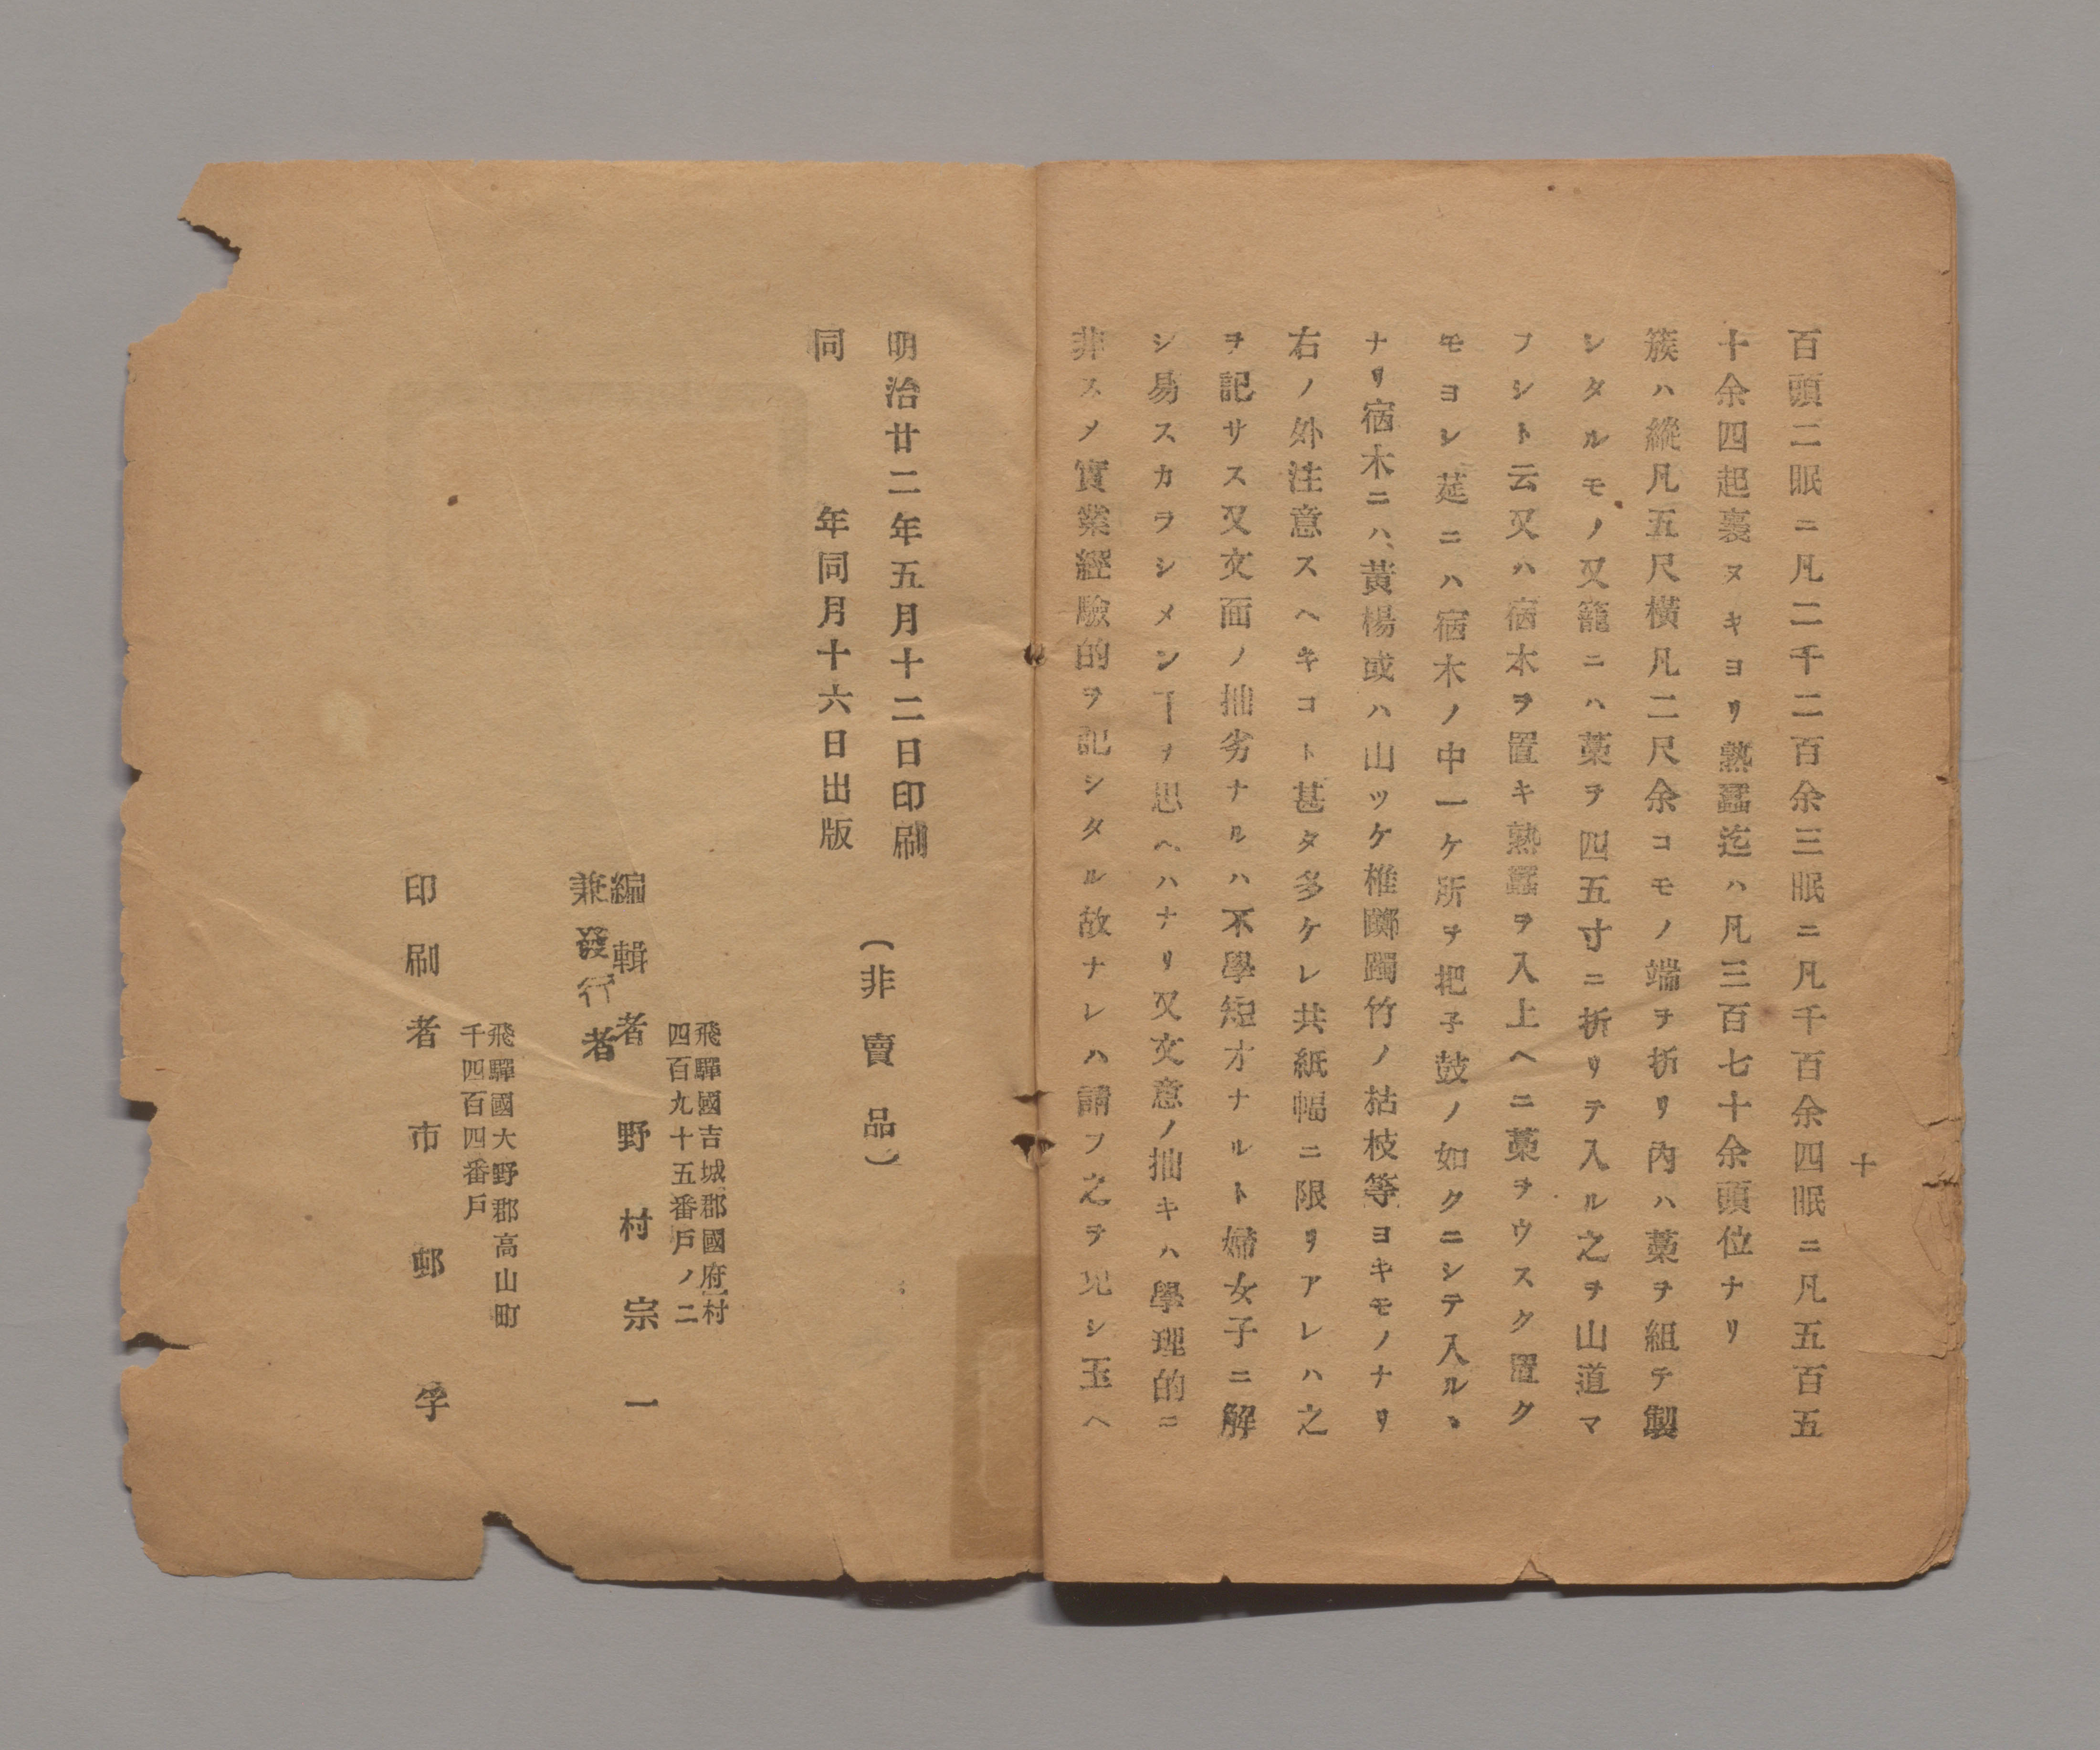 十
百頭二眠ニ凡二千二百余三眠ニ凡千百余四眠ニ凡五百五
十余四起裏ヌキヨリ熟蠶迄ハ凡三百七十余頭位ナリ
簇ハ縱凡五尺橫凡二尺余コモノ端ヲ折リ內ハ藁ヲ組テ製
シタルモノ又籠ニハ藁ヲ四五寸ニ折リテ入ル之ヲ山道マ
フシト云又ハ宿木ヲ置キ熟蠶ヲ入上ヘニ藁ヲウスク置ク
モヨシ莚ニハ宿木ノ中一ケ所ヲ把子鼓ノ如クニシテ入ルヽ
ナリ宿木ニハ、黃楊或ハ山ツケ椎躑躅竹ノ枯枝等ヨキモノナリ
右ノ外注意スヘキコト甚タ多ケレ共紙幅ニ限リアレハ之
ヲ記サス又文面ノ拙劣ナルハ不學短才ナルト婦女子ニ解
シ易スカラシメンヿヲ思ヘハナリ又文意ノ拙キハ學理的ニ
非スメ實業經驗的ヲ記シタル故ナレハ請フ之ヲ兄シ玉ヘ
明治廿二年五月十二日印刷
同年同月十六日出版
(非賣品)
飛驒國吉城郡國府村
四百九十五番戶ノ二
編輯者 野村宗一
兼發行者
飛驒國大野郡高山町
千四百四番戶
印刷者 市邨孚